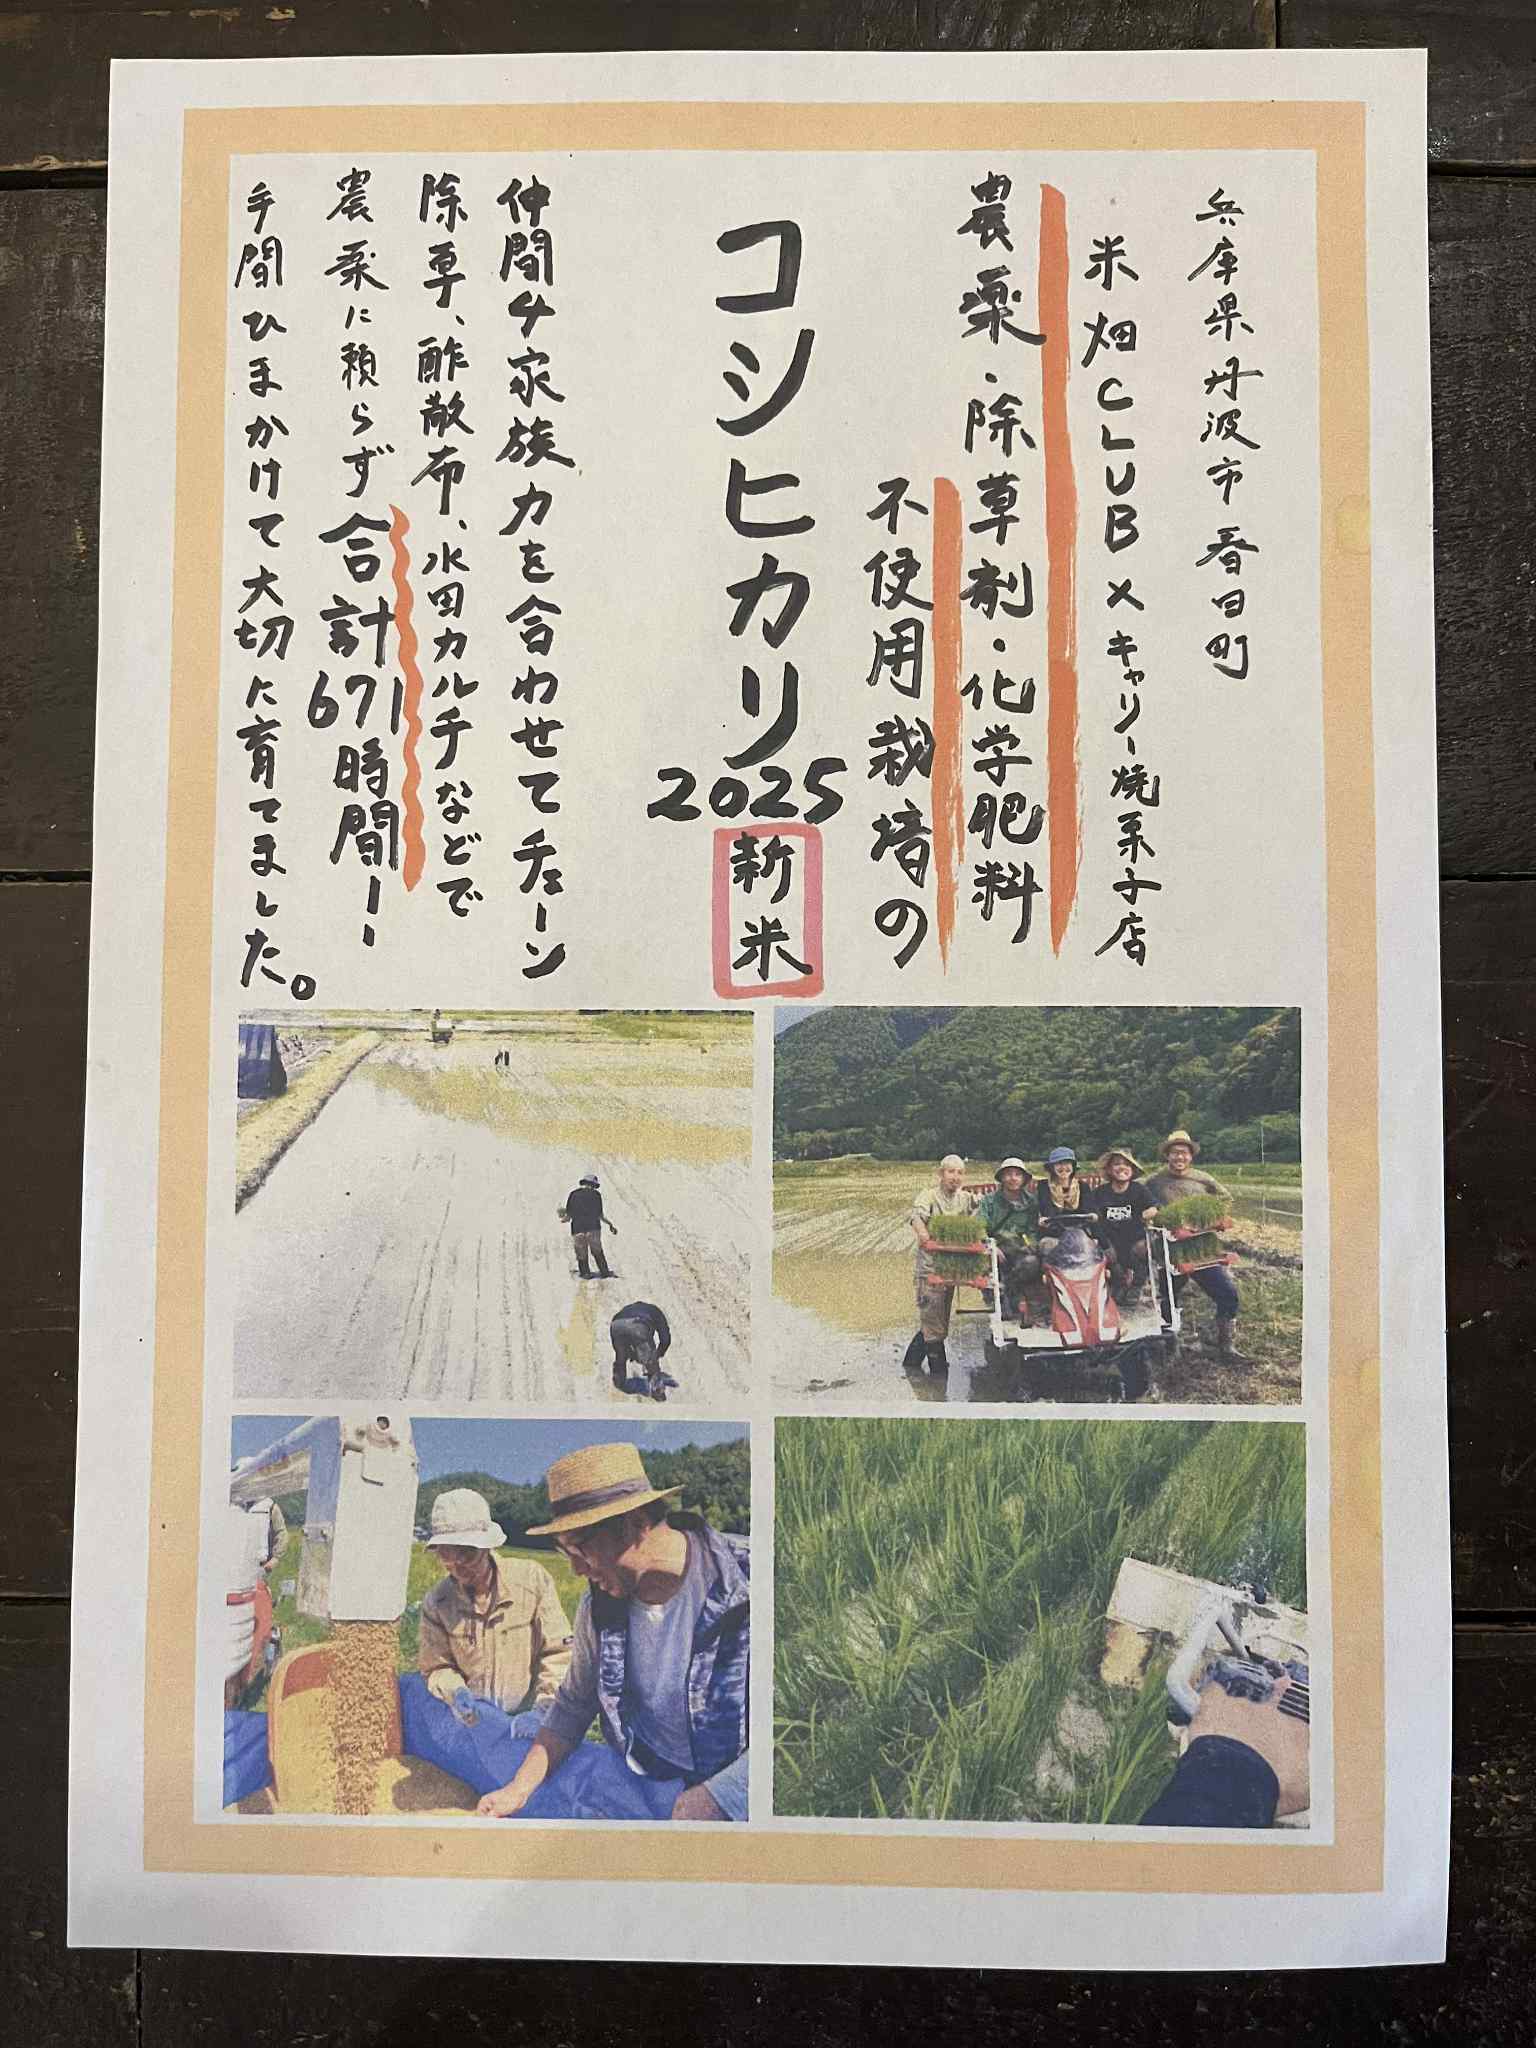 兵庫県丹波市春日町
米畑CLUB×キャリー焼菓子店
農薬・除草剤・化学肥料
不使用栽培の
コシヒカリ
2025
新米
仲間4家族力を合わせてチェーン
除草、酢散布、水田カルチなどで
農薬に頼らず合計671時間!!
手間ひまかけて大切に育てました。